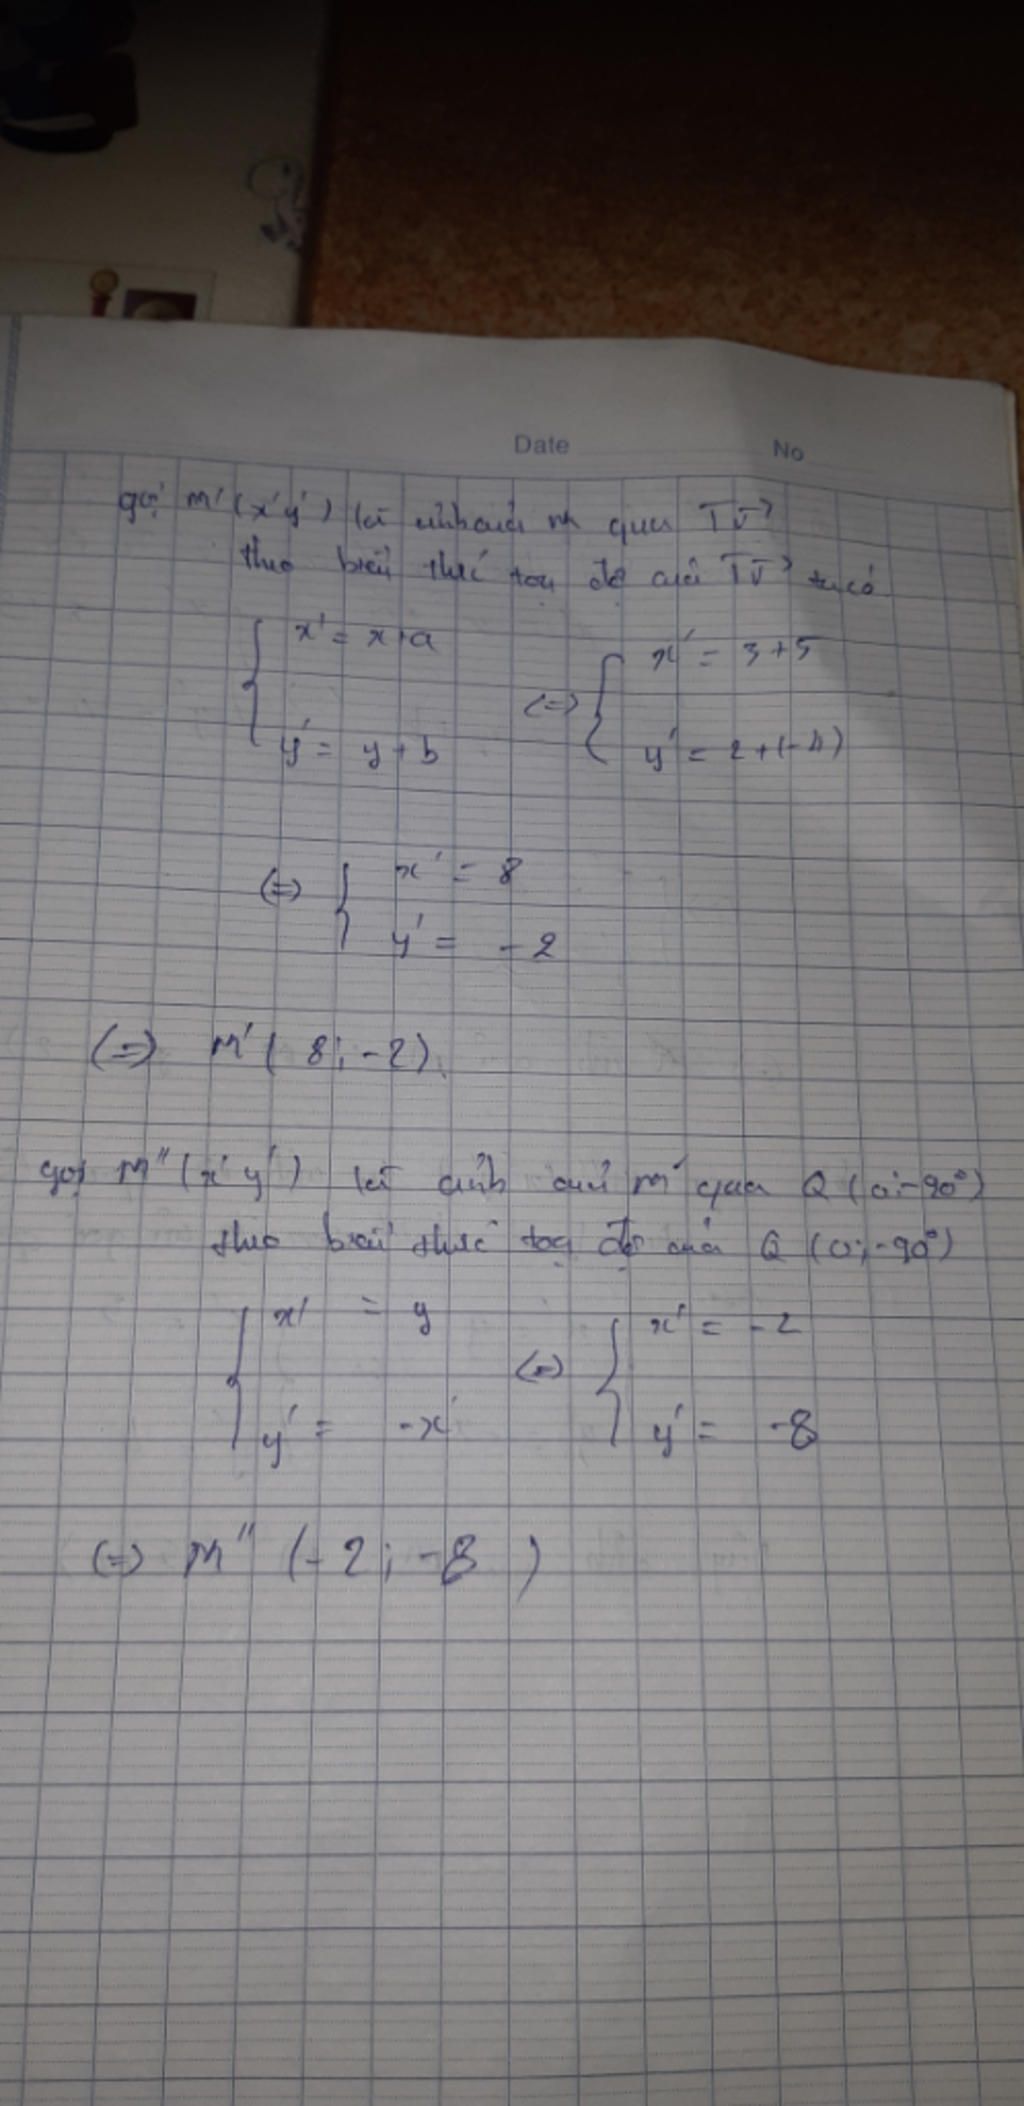 Date No
gọi M'(x'y') là ảnh của M qua Tv→
theo biểu thức tọa độ của Tv→ ta có
{ x' = x+a
y' = y+b
(=) { x' = 3+5
y' = 2+(-4)
(=) { x' = 8
y' = -2
(=) M'( 8; -2).
gọi M''(x'y') là ảnh của M' qua Q (0;-90°)
theo biểu thức tọa độ của Q (0;-90°)
{ x' = y
y' = -x
(=) { x' = -2
y' = -8
(=) M'' (-2; -8 )